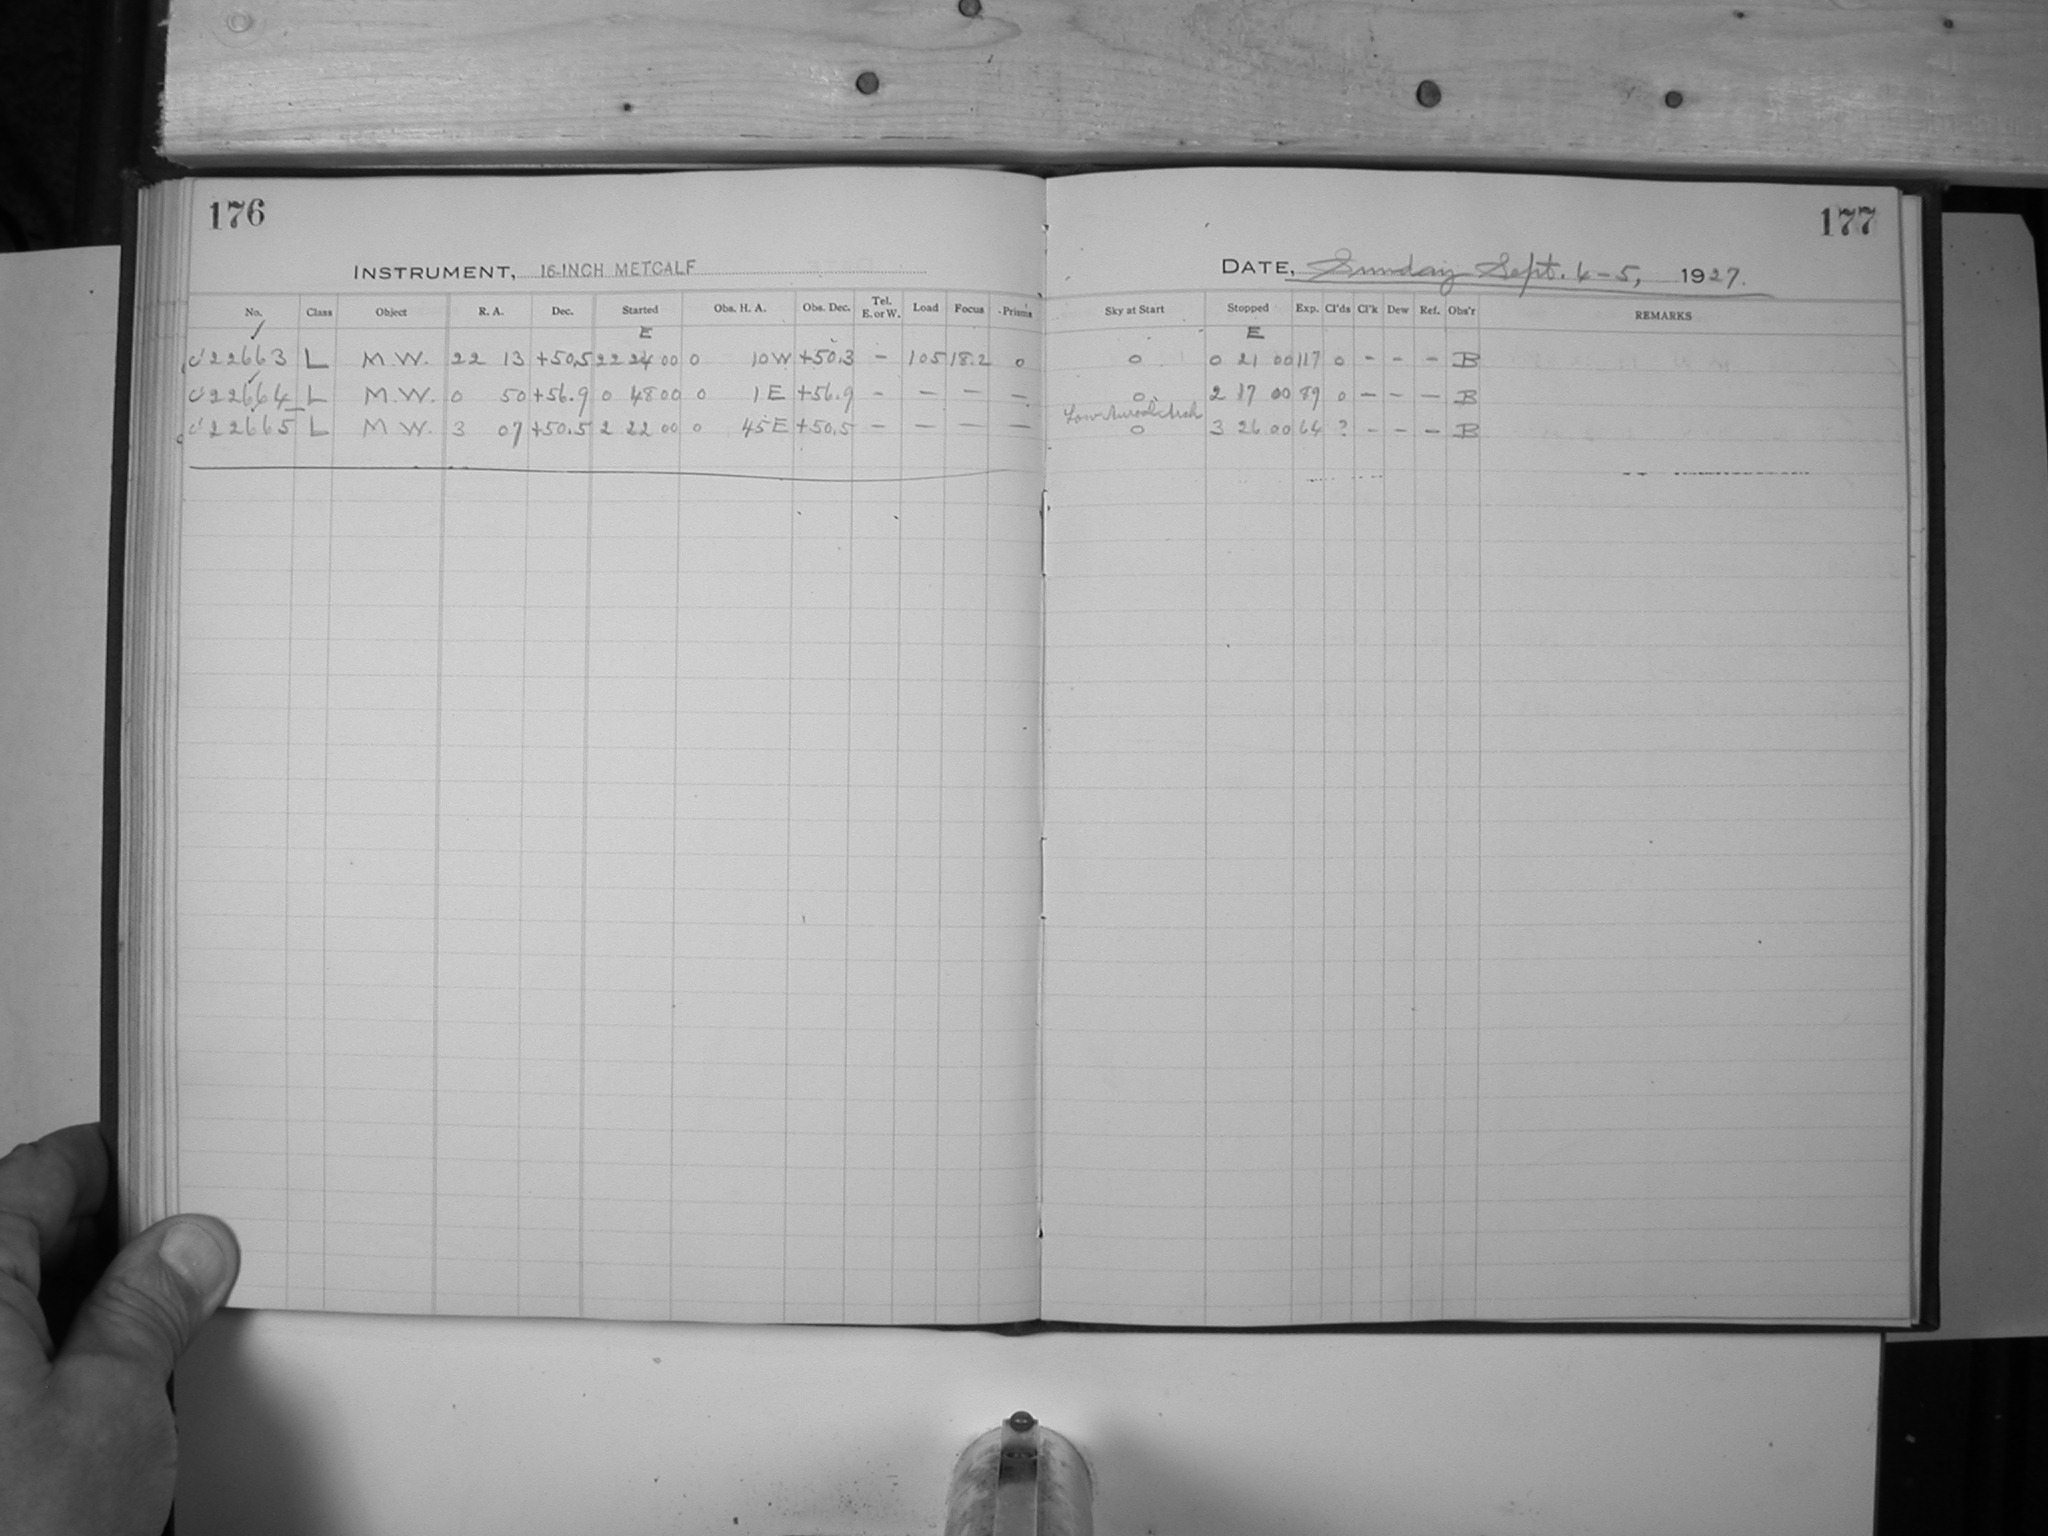 176
INSTRUMENT, 16-INCH METCALF
No. Class Object R. A. Dec. Started Obs. H. A. Obs. Dec. Tel. E. or W. Load Focus Prisms
E
22663 L M.W. 22 13 +50.5 22 24 00 0 10 W +50.3 - 105 18.2 0
22664 L M.W. 0 50 +56.9 0 48 00 0 1 E +56.9 - - - -
22665 L M.W. 3 07 +50.5 2 22 00 0 45 E +50.5 - - - -
177
DATE, Sunday Sept. 4-5, 1927.
Sky at Start Stopped Exp. Cl'ds Cl'k Dew Ref. Obs'r REMARKS
E
0 0 21 00 117 0 - - - B
0 2 17 00 89 0 - - - B
Low Auroral Arch
0 3 26 00 64 ? - - - B